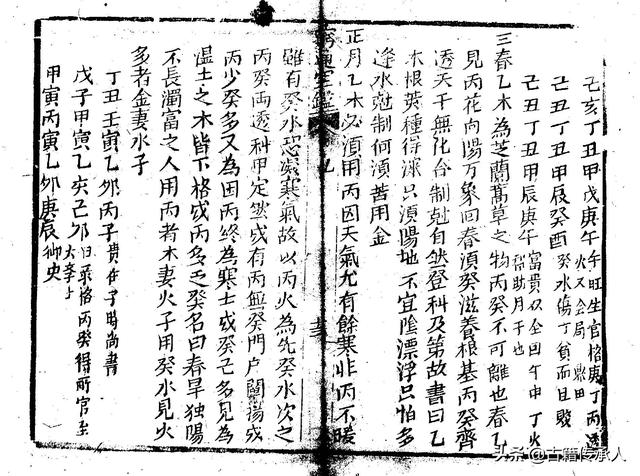 己亥丁丑甲戌庚午 午旺生官格庚丁丙透 火又会局 鼎甲
己丑丁丑甲辰癸酉 癸水傷丁貧而且賤
己丑丁丑甲辰庚午 富貴双全因午中丁火 帮助月干也
三春乙木為芝蘭蒿草之物丙癸不可離也春乙
見丙花向陽万象回春須癸滋養根基丙癸齊
透天干無化合制剋自然登科及第故書曰乙
木根荄種得深只須陽地不宜陰漂浮只怕多
逢水剋制何須苦用金
正月乙木必須用丙因天氣尤有餘寒非丙不暖
窮通宝鑑
雖有癸水恐凝寒氣故以丙火為先癸水次之
丙癸両透科甲定然或有丙無癸門户闡揚或
丙少癸多又為困丙終為寒士或癸己多見為
湿土之木皆下格或丙多乏癸名曰春旱独陽
不長濁富之人用丙者木妻火子用癸水見火
多者金妻水子
丁丑壬寅乙卯丙子 貴在子時尚書
戊子甲寅乙亥己卯 丙癸得所官至
甲寅丙寅乙卯庚辰 御史
头条 @古籍传承人